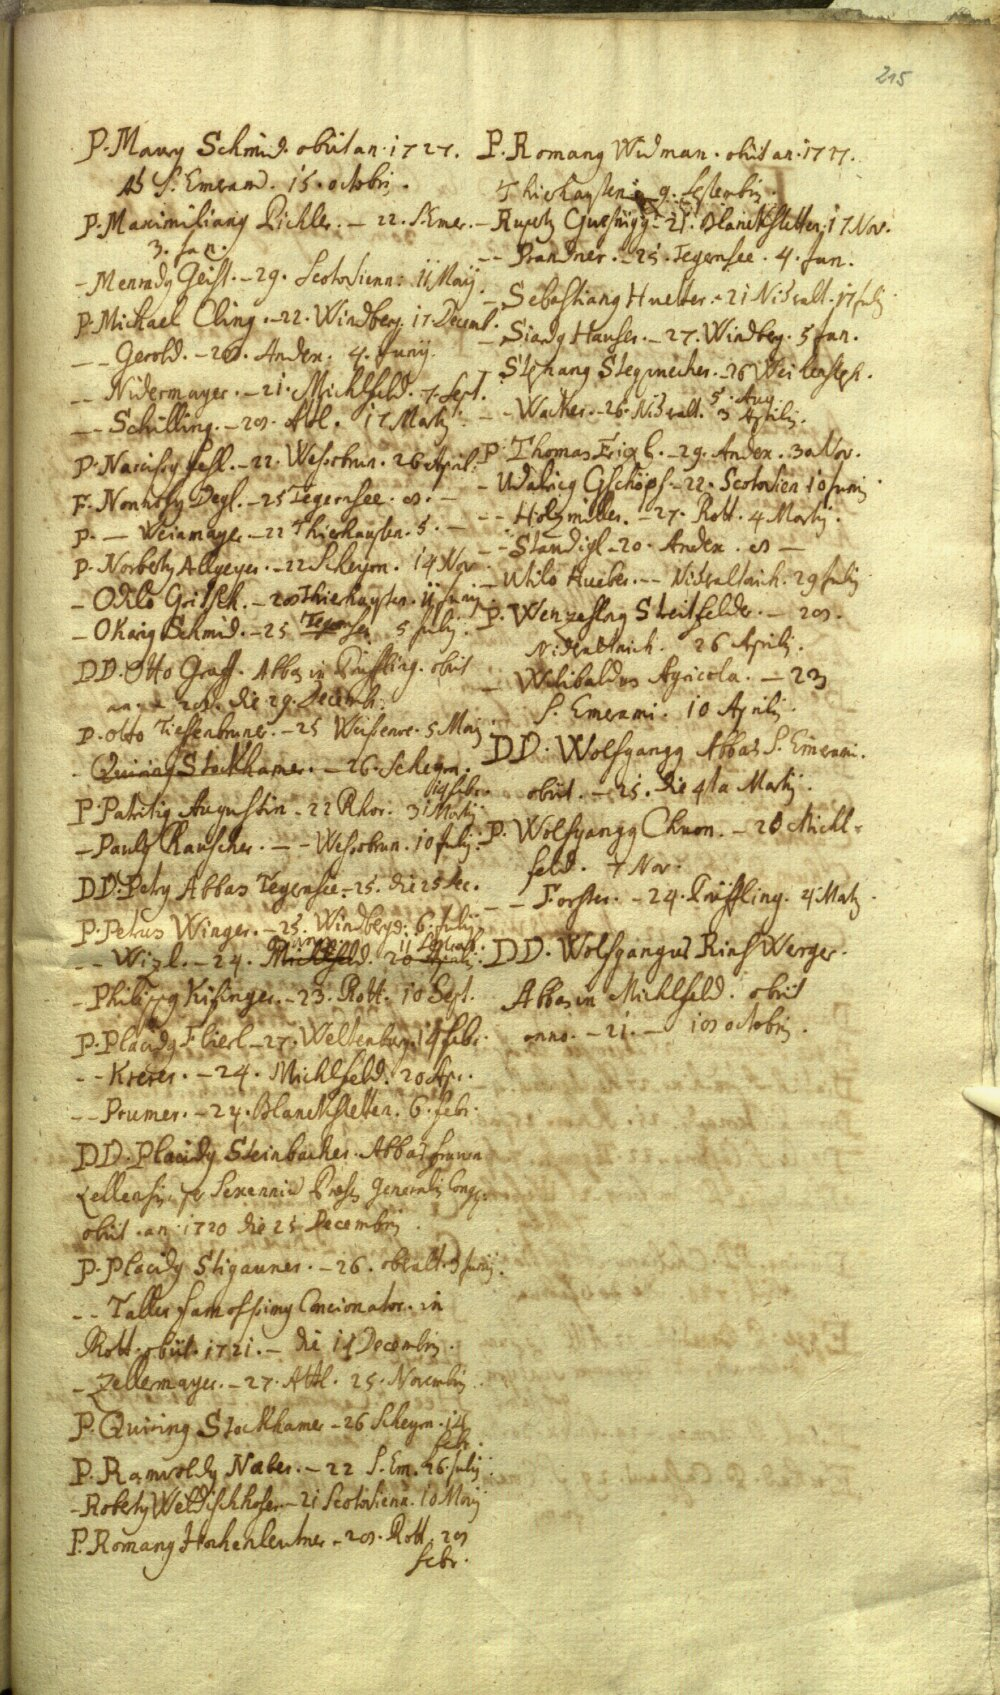 215
P. Maurꝯ Schmid. obiit an. 1727.
Ad S. Emeram. 15. octobris.
P. Maximilianꝯ Pichler. – 22. S. Emer.
3. Jan.
– Menradꝯ Geist. – 29. Scotovienn. 11 Maij.
P. Michael Cling. – 22. Windberg. 17. Decemb.
– – Gerold. – 20. Andex. 4. Junij.
– – Nidermayer. – 21. Michlfeld. 7. Sept.
– – Schilling. – Attl. 17 Martij.
P. Narcissꝯ – 22. Wessobrun. 26 April.
F. Nonnosꝯ Degl. – 25 Tegernsee. –
P. – Weinmayer – 22 Thierhaupten. 5. –
P. Norbertꝯ Allgeyer. – 22 Scheyrn. 14 Nov
– Odilo Gritsch. – Thierhaupten. 11 Junij.
– Schmid. – 25 Tegernsee 5 Julij.
DD. Otto Graff. Abbas in Prüffling. obiit
die 29. Decemb.
P. Otto Tieffenbruner. – 25 Weissenoe. 5 Maij
– Quirinꝯ Stockhamer. – 26. Scheyrn.
14 febr.
P. Patritiꝯ Augustin – 22 Rhor. 31 Martij
– Paulꝯ Rauscher. – – Wessobrun. 10 Julij.
DD. Petrꝯ Abbas Tegernsee. – 25. die 25 Dec.
P. Petrus Winger. – 25. Windberg. 6. Julij
– – Wizl. – 24. Michlfeld. 20
– Philippꝯ Kisinger. – 23. Rott. 10 Sept.
P. Placidꝯ Flierl – 27. Weltenburg. 14 febr.
– – Krerer. – 24. Michlfeld. 20 Apr.
– – Prumer. – 24. Blanckstetten. 6. febr.
DD. Placidꝯ Steinbacher. Abbas
Zellensis, per Sexennia Præses Generalis Congr.
obiit. an. 1720 die 25 Decembris.
P. Placidꝯ Stigauner. – 26. obralt. 3 Junij.
– – Taller famosissimꝯ Concionator. in
Rott. obiit. 1721. – die 14 Decembris.
– Zellermayer. – 27. Attl. 25. Novembris.
P. Quirinꝯ Stockhamer – 26 Scheyrn. 14
febr.
P. Ramvoldꝯ Naber. – 22 S. Em. 26. Julij
– Robertꝯ Weldischhofer – 21 Scotovienn. 10 Maij
P. Romanꝯ Hochenleutner – Rott.
febr.
P. Romanꝯ Widman. obiit an. 1727.
Thierhaupten 9. Septembris.
– Rupertꝯ – 21. Blanckstetten. 17 Nov.
– – Prandner. – 25. Tegernsee. 4. Jan.
– Sebastianꝯ Hueber. – 21 Nidralt. 17 Julij
– Hauser. – 27. Windberg. 5 Jan.
Stephanꝯ – 26 Weichensteph.
5. Aug.
– – Wacker. – 26. Nidralt. 3 Aprilis.
P. Thomas – 29. Andex. 30 Nov.
– Udalricꝯ Gschöpf – 22. Scotovien 10 Junij
– – Holzmiller. – 27. Rott. 4 Martij.
– – Standigl – 20. Andex. –
– Utilo Hueber. – – Nideraltaich. 29 Julij
P. Wenzeslaꝯ Streitfelder. –
Nideraltaich. 26 Aprilis.
– Wilibaldus Agricola. – 23
S. Emerami. 10 Aprilis.
DD. Wolfgangꝯ Abbas S. Emerami.
obiit. – 25. die 4ta Martij.
P. Wolfgangꝯ – 28 Michl-
feld. 7 Nov.
– – Forster. – 24. Prüffling. 4 Martij
DD. Wolfgangus Rinswerger.
Abbas in Michlfeld. obiit
anno. – 21. – octobris.